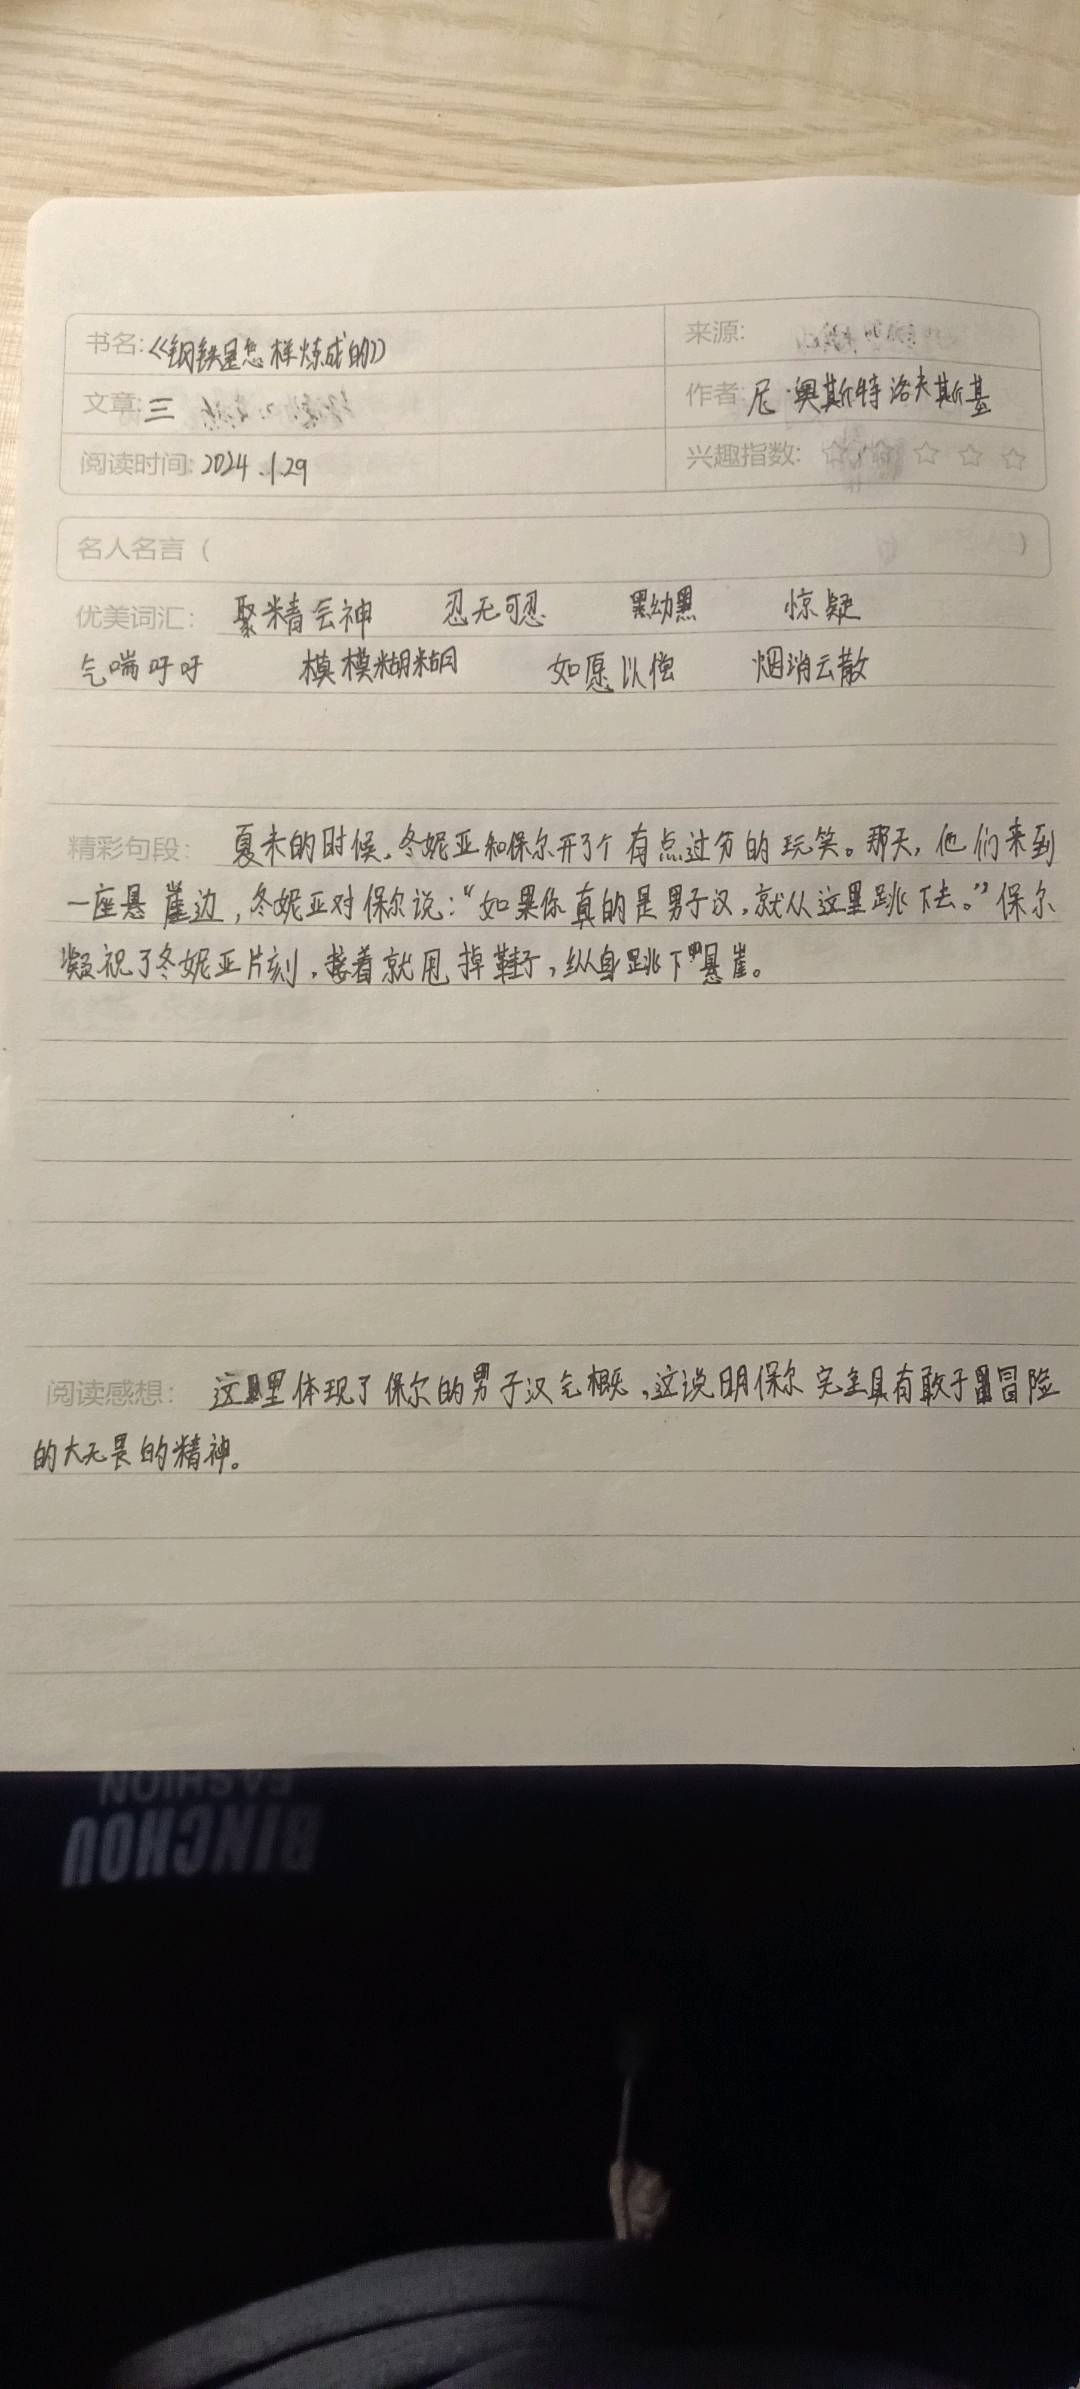 书名:《钢铁是怎样炼成的》
来源:
文章:三
作者:尼·奥斯特洛夫斯基
阅读时间:2024.1.29
兴趣指数:☆☆☆☆☆
名人名言( )
优美词汇: 聚精会神 忍无可忍 黑黝黑 惊疑
气喘吁吁 模模糊糊 如愿以偿 烟消云散
精彩句段: 夏末的时候,冬妮亚和保尔开了个有点过分的玩笑。那天,他们来到
一座悬崖边,冬妮亚对保尔说:“如果你真的是男子汉,就从这里跳下去。”保尔
凝视了冬妮亚片刻,接着就甩掉鞋子,纵身跳下悬崖。
阅读感想: 这里体现了保尔的男子汉气概,这说明保尔完全具有敢于冒险
的大无畏的精神。
FASHION
BINCHOU